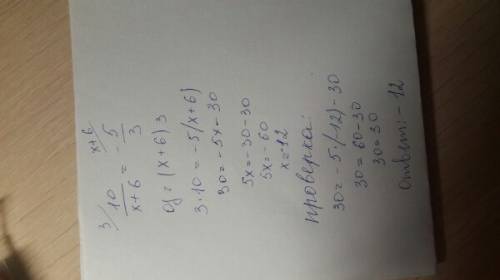 3/ 10/(x+6) = x+6/ -5/3
оз = (x+6) 3
3·10 = -5(x+6)
30 = -5x-30
5x = -30-30
5x = -60
x = -12
проверка:
30 = -5·(-12)-30
30 = 60-30
30 = 30
ответ: -12